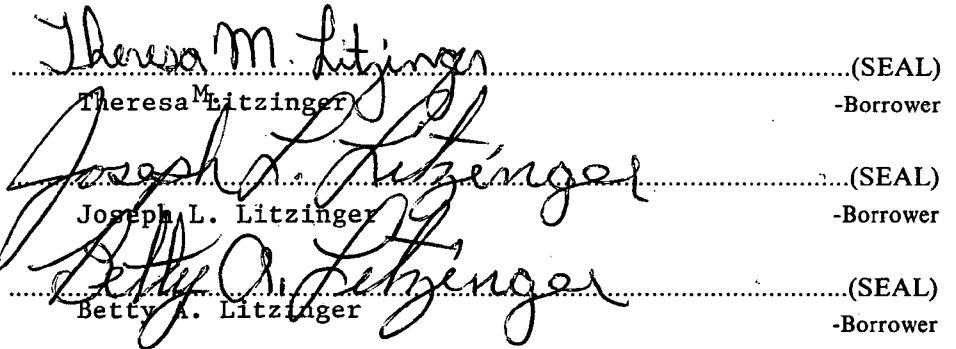 Theresa M. Litzinger
....................(SEAL)
Theresa M. Litzinger -Borrower
Joseph L. Litzinger
....................(SEAL)
Joseph L. Litzinger -Borrower
Betty A. Litzinger
....................(SEAL)
Betty A. Litzinger -Borrower